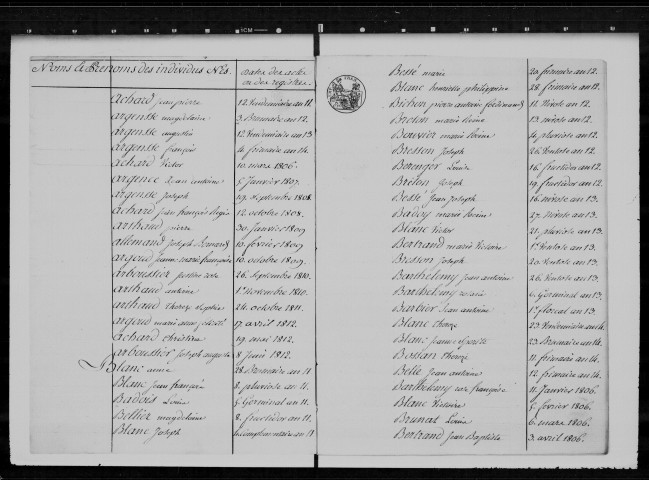 Noms & Prenoms des individus Nés. dates des actes ou des registres.
achard jean pierre 12. Vendemiaire an 11.
argensse magdelaine 3. Brumaire an 12.
argensse augustin 12. Vendemiaire an 13
argensse françois 4. frimaire an 14.
achard Victor 10. mars 1806.
argence Jean antoine 5. Janvier 1807.
argensse Joseph 19. Septembre 1808.
achard Jean françois Regis 12. octobre 1808.
arthaud pierre 30. janvier 1809
allemand Joseph Romand 10. fevrier 1809
argoud Jeanne marie françoise 10. octobre 1809.
arboussier rose 26. Septembre 1810.
arthaud antoine 1er. novembre 1810.
arthaud therese Sophie 24. octobre 1811.
argoud marie anne 17. avril 1812.
achard christine 19. mai 1812.
arboussier Joseph auguste 8. Juin 1812.
Blanc anne 28. Brumaire an 11
Blanc Jean françois 8. pluviose an 11.
Badois Louis 5. Germinal an 11.
Bellier magdelaine 8. fructidor an 11.
Blanc Joseph complementaire an 11
Bessé marie 20. frimaire an 12.
Blanc henriette philippine 28. frimaire an 12.
Bichon pierre antoine ferdinand 11. Nivose an 12.
Breton marie Rosine 13. nivose an 12.
Bouvier marie Rosine 4. pluviose an 12.
Bresson Joseph 26. Ventose an 12.
Berenger Louise 16. fructidor an 12.
Breton Joseph 19. fructidor an 12.
Bessé Jean Joseph 16. nivose an 13.
Baday marie Rosine 27. Nivose an 13.
Blanc Victor 21. pluviose an 13.
Bertrand marie Victoire 1er. Ventose an 13.
Bresson Joseph 20. Ventose an 13.
Barthelemy Jean antoine 26. Ventose an 13.
Barthelemy rosalie 6. Germinal an 13.
Barbier Jean antoine 1er. floreal an 13.
Blanc therese 23. Vendemiaire an 14.
Blanc Jeanne 23. Brumaire an 14.
Bossan therese 11. frimaire an 14.
Belle Jean antoine 12. frimaire an 14.
Barthelemy rose françoise 11. Janvier 1806.
Blanc Victoire 5. fevrier 1806.
Brunat Louis 6. mars 1806.
Bertrand Jean Baptiste 3. avril 1806.